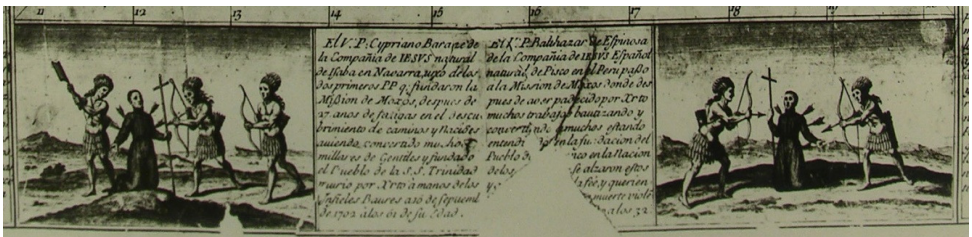 11 12 13 14 15 16 17 18 19
El V. P. Cypriano Baraze de
la Compañia de IESVS natural
de Isaba en Navarra, uno de los
dos primeros PP q. fundaron la
Mission de Moxos, despues de
27 años de fatigas en el descu
brimiento de caminos y Naciōes
aviendo convertido muchos
millares de Gentiles y fundado
el Pueblo de la S.S. Trinidad
murio por Xrto à manos de los
Infieles Baures a 16 de
de 1702 à los 61 de su Edad.
El V. P. Balthazar de Espinosa
de la Compañia de IESVS Español
natural, de Pisco en el Peru passo
a la Mission de Moxos donde des
pues de aver padecido por Xrto
muchos trabajos bautizando y
convertiendo muchos estando
en la fundacion del
Pueblo en la Nacion
de los se alzaron estos
y la feè, y querien
muerte viole
a los 32